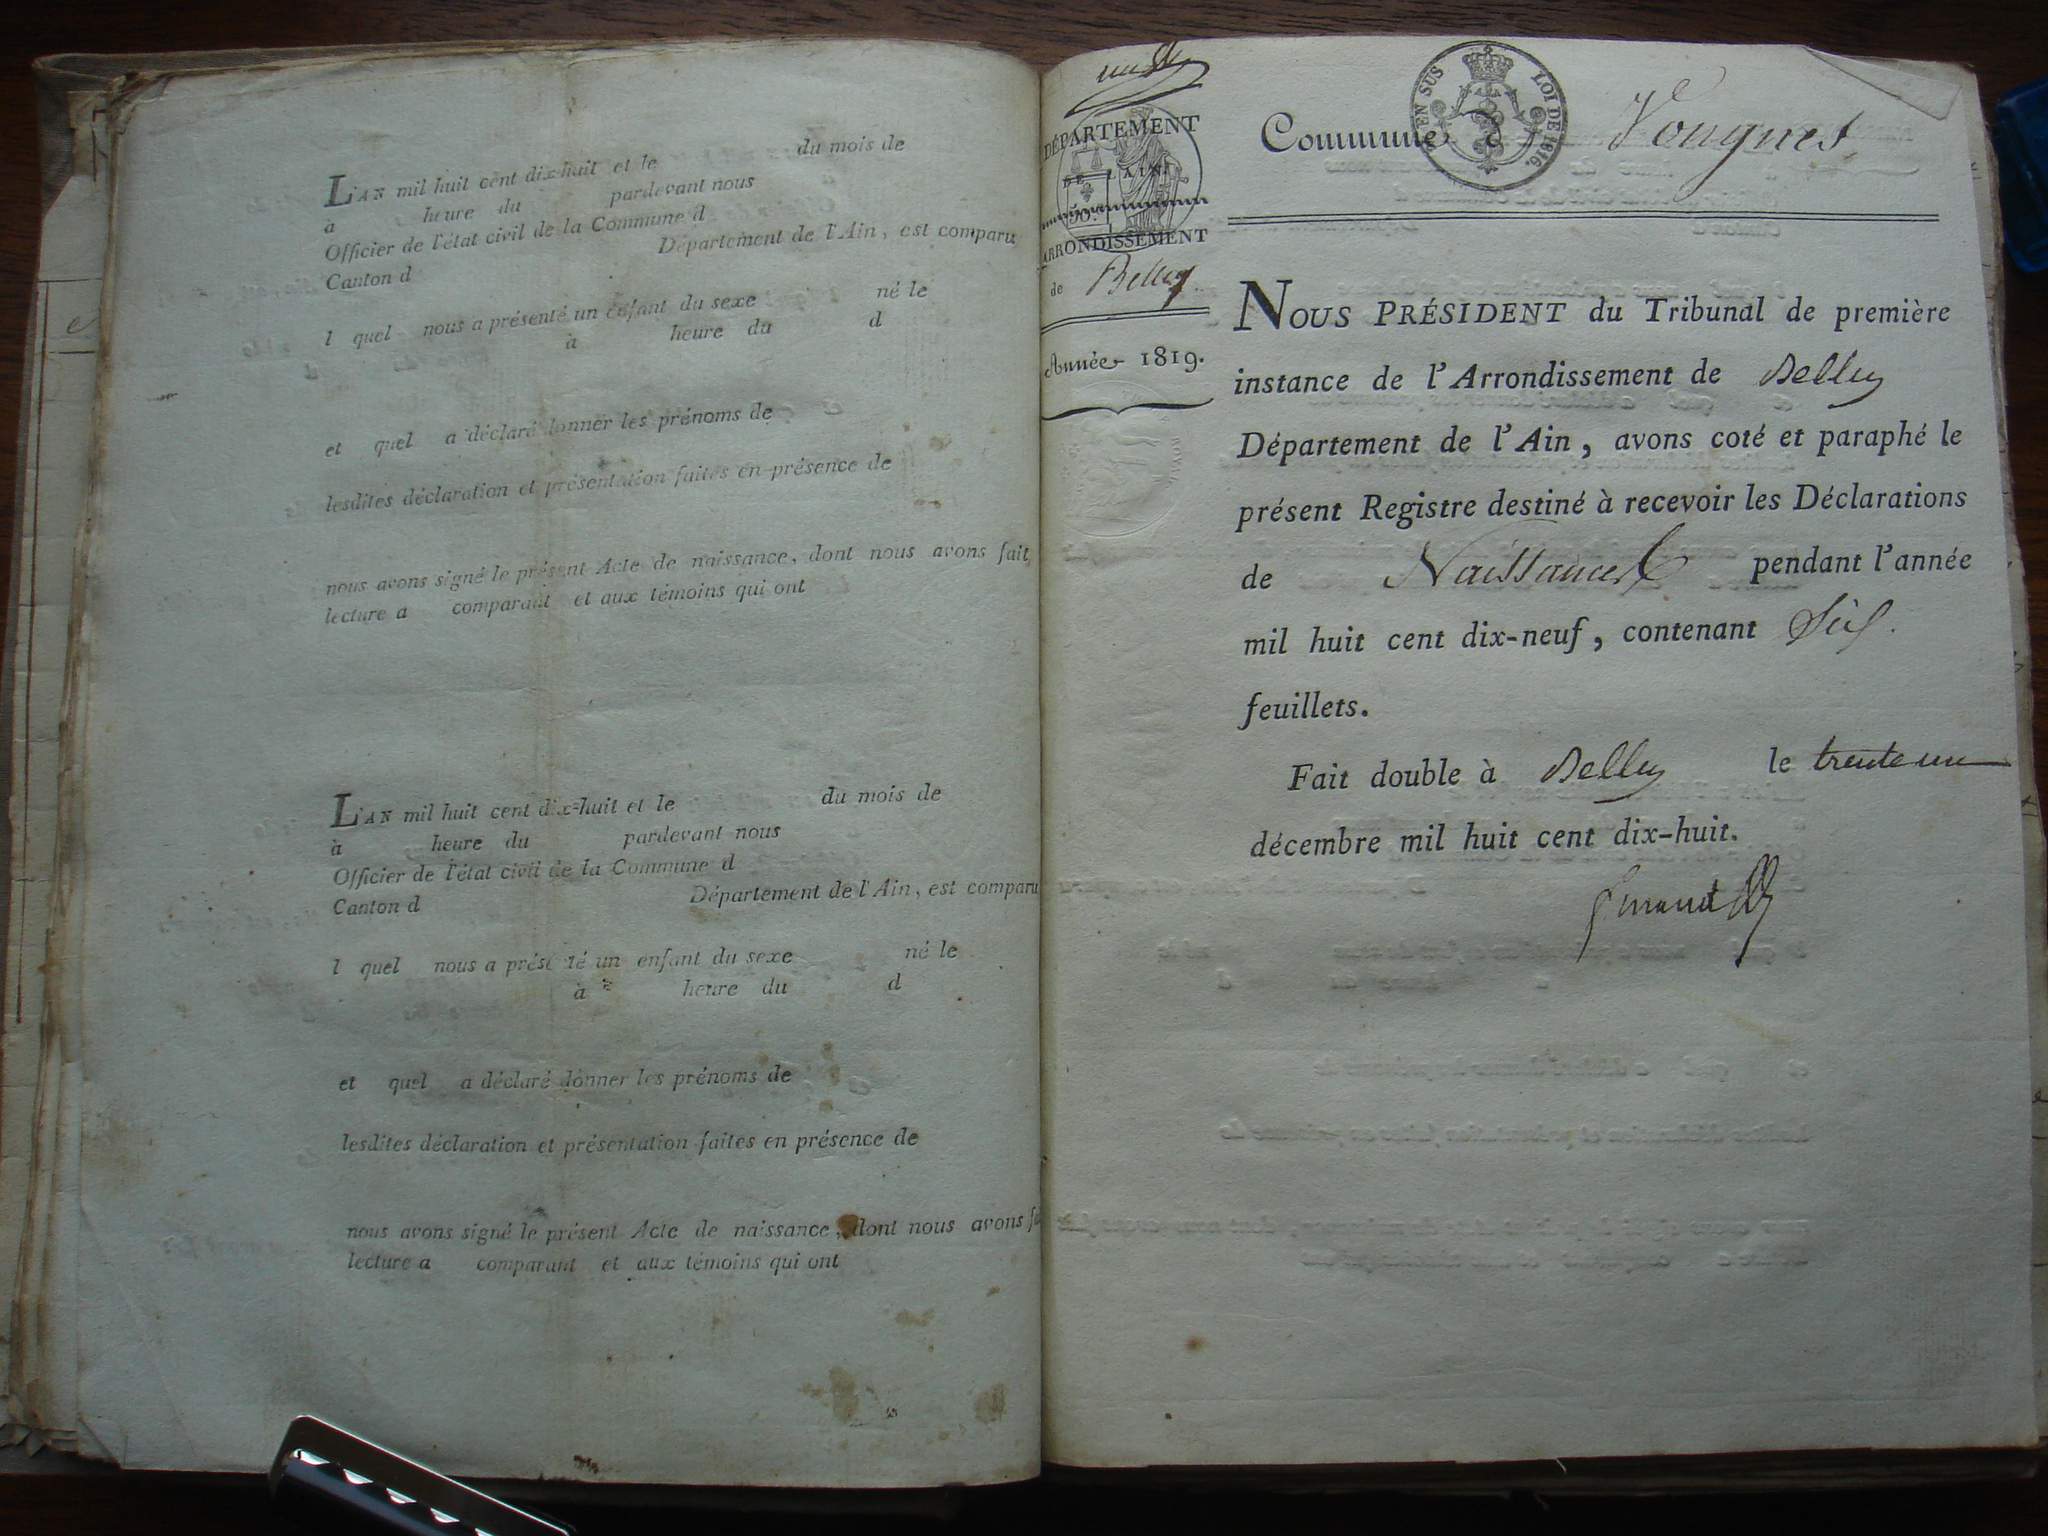 L'AN mil huit cent dix-huit et le du mois de
à heure du pardevant nous
Officier de l'état civil de la Commune d
Canton d Département de l'Ain, est comparu
l quel nous a présenté un enfant du sexe né le
à heure du d
et quel a déclaré donner les prénoms de
lesdites déclaration et présentation faites en présence de
nous avons signé le présent Acte de naissance, dont nous avons fait
lecture a comparant et aux témoins qui ont
L'AN mil huit cent dix-huit et le du mois de
à heure du pardevant nous
Officier de l'état civil de la Commune d
Canton d Département de l'Ain, est comparu
l quel nous a présenté un enfant du sexe né le
à heure du d
et quel a déclaré donner les prénoms de
lesdites déclaration et présentation faites en présence de
nous avons signé le présent Acte de naissance, dont nous avons
lecture a comparant et aux témoins qui ont
DÉPARTEMENT
DE L'AIN.
ARRONDISSEMENT
de Belley.
Année 1819.
EN SUS LOI DE 1816.
Commune d Vongnes
NOUS PRÉSIDENT du Tribunal de première
instance de l'Arrondissement de Belley
Département de l'Ain, avons coté et paraphé le
présent Registre destiné à recevoir les Déclarations
de Naissances pendant l'année
mil huit cent dix-neuf, contenant Six
feuillets.
Fait double à Belley le trente un
décembre mil huit cent dix-huit.